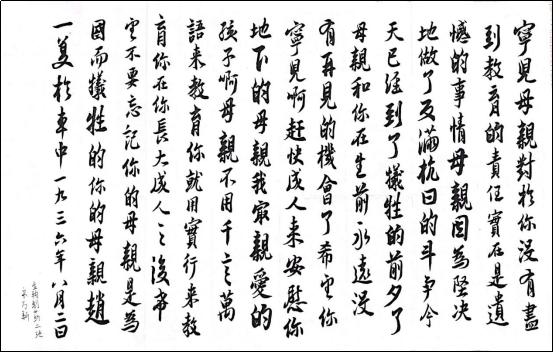 寧兒母親對於你没有盡
到教育的責任實在是遺
憾的事情母親因為堅决
地做了反滿抗日的斗争今
天已經到了犧牲的前夕了
母親和你在生前永遠没
有再見的機會了希望你
寧兒啊赶快成人来安慰你
地下的母親我最親愛的
孩子啊母親不用千言萬
語来教育你就用實行来教
育你在你長大成人之後希
望不要忘記你的母親是為
國而犧牲的你的母親趙
一曼於車中一九三六年八月二日